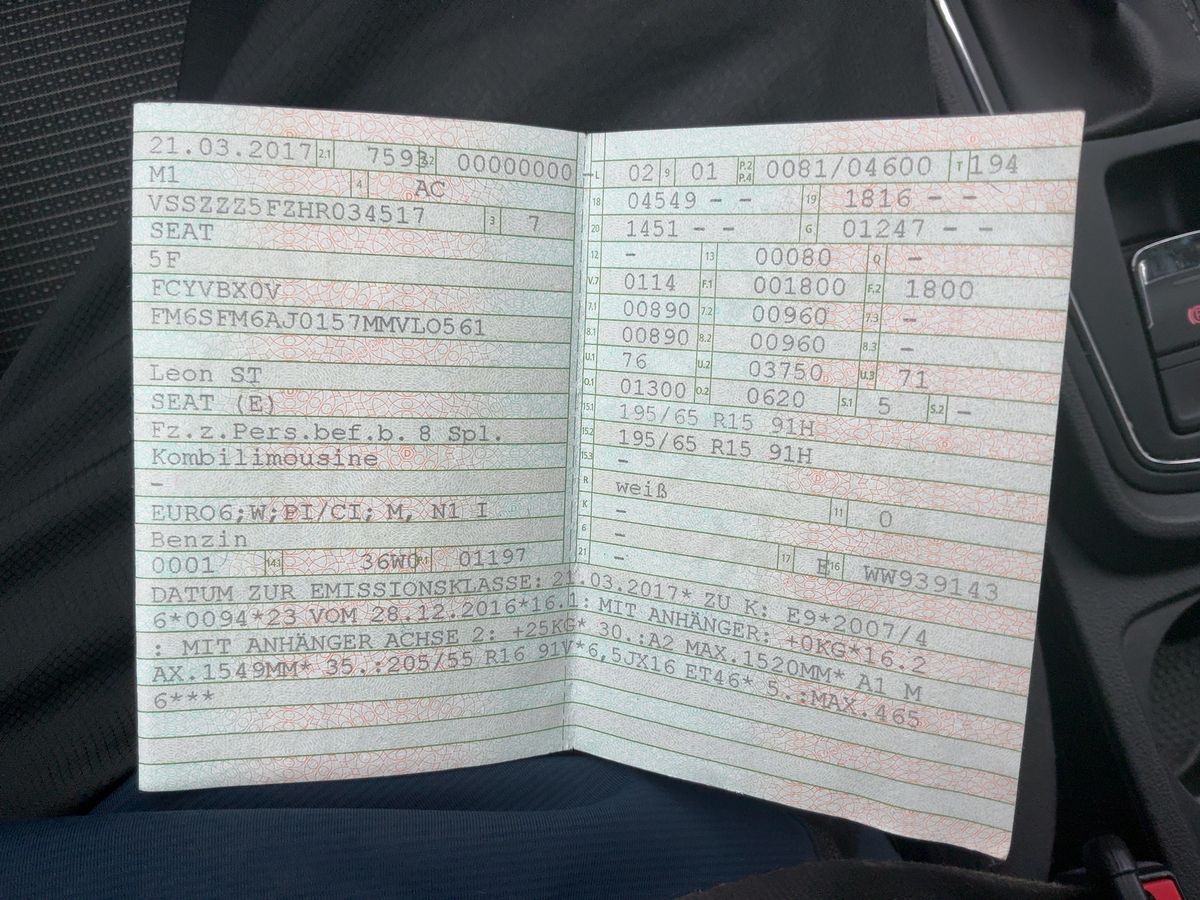 21.03.2017 2.1 7593 2.2 00000000
M1 4 AC
VSSZZZ5FZHR034517 3 7
SEAT
5F
FCYVBX0V
FM6SFM6AJ0157MMVLO561
Leon ST
SEAT (E)
Fz.z.Pers.bef.b. 8 Spl.
Kombilimousine
-
EURO6;W;PI/CI; M, N1 I
Benzin
0001 14.1 36W0 P.1 01197
L 02 9 01 P.2 P.4 0081/04600 T 194
18 04549 - - 19 1816 - -
20 1451 - - G 01247 - -
12 - 13 00080 Q -
V.7 0114 F.1 001800 F.2 1800
7.1 00890 7.2 00960 7.3 -
8.1 00890 8.2 00960 8.3 -
U.1 76 U.2 03750 U.3 71
O.1 01300 O.2 0620 S.1 5 S.2 -
15.1 195/65 R15 91H
15.2 195/65 R15 91H
15.3 -
R weiß 11 0
K -
6 - 17 E 16 WW939143
21 -
DATUM ZUR EMISSIONSKLASSE: 21.03.2017* ZU K: E9*2007/4
6*0094*23 VOM 28.12.2016*16.1: MIT ANHÄNGER: +0KG*16.2
: MIT ANHÄNGER ACHSE 2: +25KG* 30.:A2 MAX.1520MM* A1 M
AX.1549MM* 35.:205/55 R16 91V*6,5JX16 ET46* 5.:MAX.465
6***